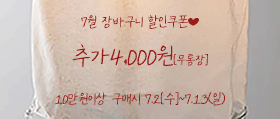 7월 장바구니 할인쿠폰♥
추가4,000원[무통장]
10만원이상 구매시 7.2[수]~7.13(일)